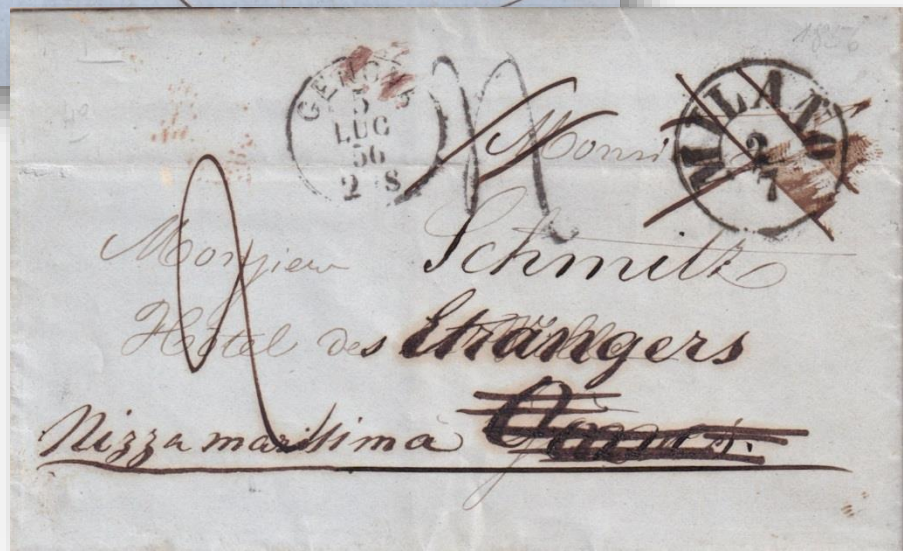 1856
GENOVA
5
LUG
56
2 S
MILANO
2/7
Monsieur Schmilk
Hôtel des Etrangers
Nizza marittima